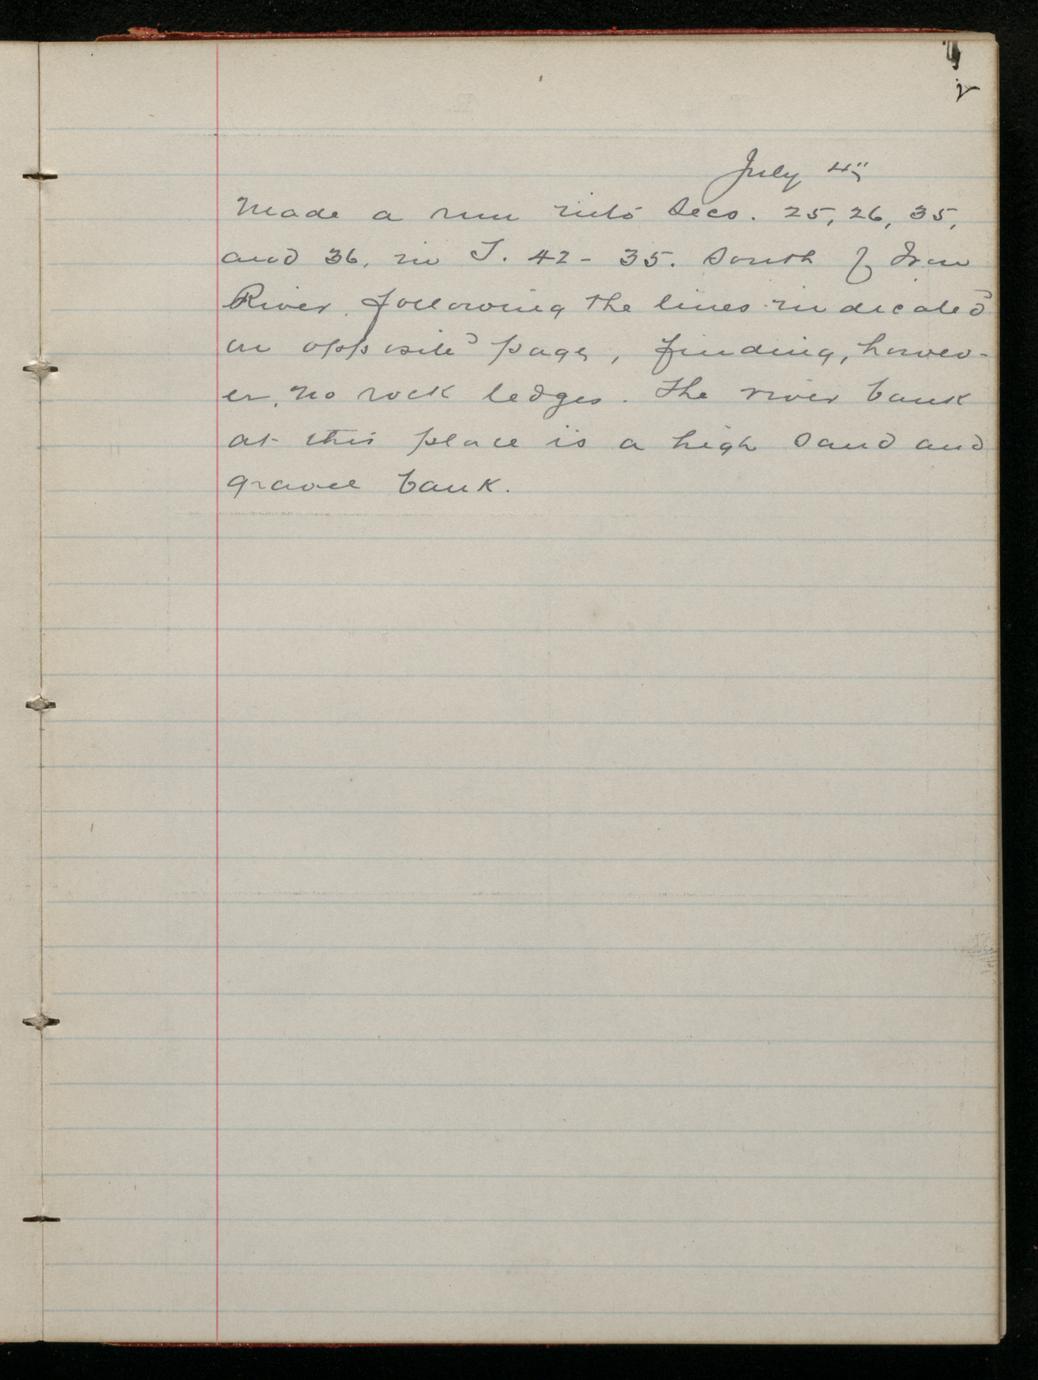 2
July 4"
Made a run into Secs. 25, 26, 35,
and 36, in T. 42 - 35. South of Iron
River, following the lines indicated
on opposite page, finding, howev-
er, no rock ledges. The river bank
at this place is a high sand and
gravel bank.